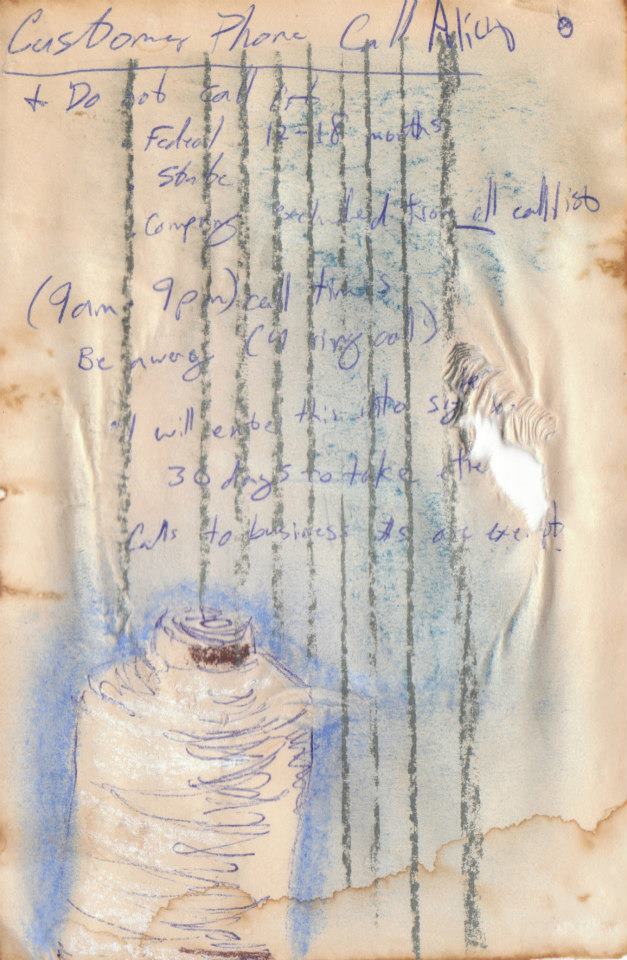 Customer Phone Call Policy
+ Do not call list
Federal 12-18 months
State
Company excluded from all call list
(9am - 9pm) call times
Be aware (4 ring call)
"I will enter this into
30 days to take
Calls to business #s are exempt.